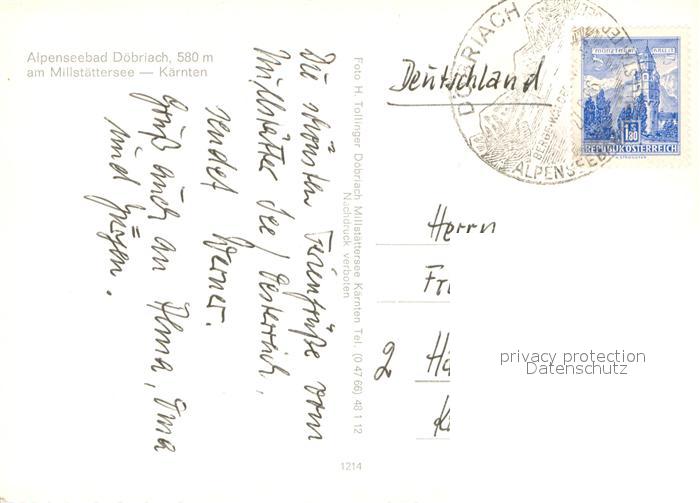 Alpenseebad Döbriach, 580 m
am Millstättersee — Kärnten
Die schönsten Feriengrüße vom
Millstätter See, Österreich,
sendet Werner.
Gruß auch an Alma, Oma
und Jürgen.
Foto H. Tollinger Döbriach Millstättersee Kärnten Tel. (0 47 66) 48 1 12
Nachdruck verboten
1214
Deutschland
DÖBRIACH
ALPENSEEB
münzturm hall i.t.
S 1.80
REPUBLIK ÖSTERREICH
Herrn
Fr
2 Ha
K
privacy protection
Datenschutz